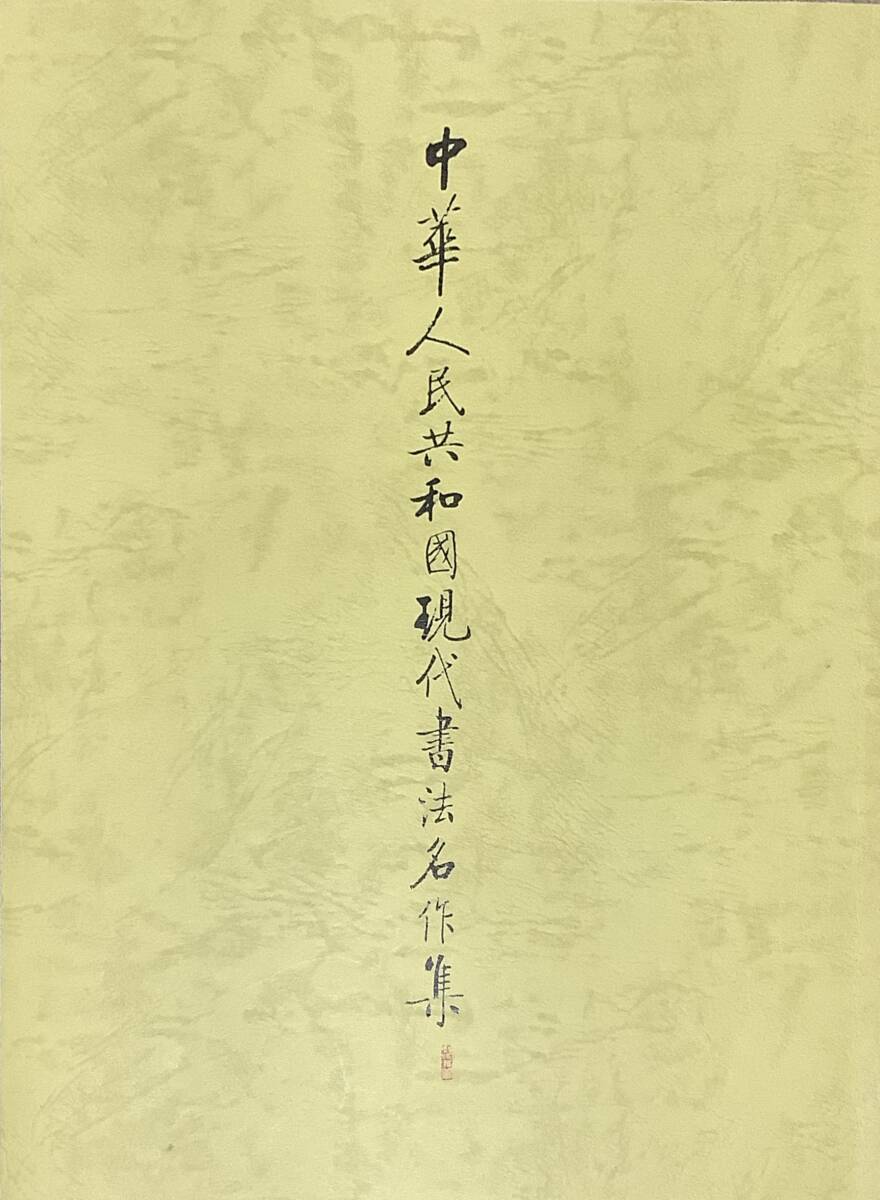 中華人民共和國現代書法名作集